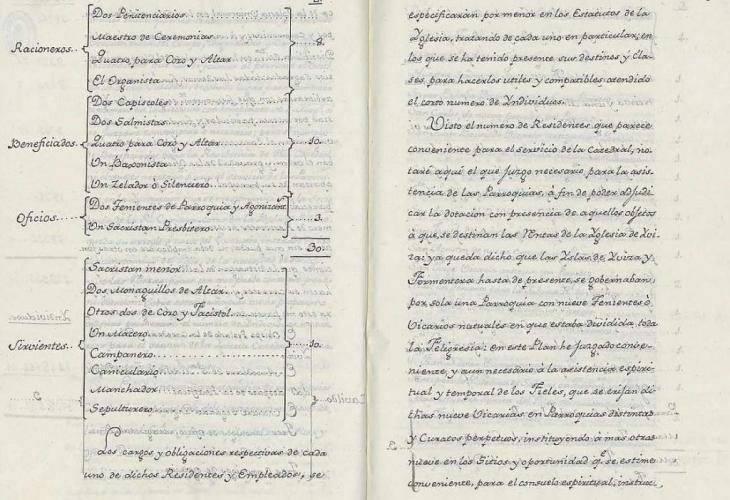 Racioneros....
Dos Penitenciarios
Maestro de Ceremonias
Quatro para Coro y Altar
El Organista
8.
Beneficiados.
Dos Capiscoles
Dos Salmistas
Quatro para Coro y Altar
Un Baxonista
Un Zelador ò Silenciero
10.
Oficios.....
Dos Tenientes de Parroquia y Agonizant
Un Sacristan Presbitero
3.
30.
Sirvientes....
Sacristan menor
Dos Monaguillos de Altar
Otros dos de Coro y Facistol
Un Macero
Campanero
Caniculario
Manchador
Sepulturero
10.
dos cargos y obligaciones respectivas de cada
uno de dichos Residentes y Empleados, se
especificarán por menor en los Estatutos de la
Yglesia, tratando de cada uno en particular; en
los que se ha tenido presente sus destinos y cla-
ses, para hacerlos utiles y compatibles atendido
el corto numero de Yndividuos.
Visto el numero de Residentes que parece
conveniente para el servicio de la Catedral, no-
taré aqui el que juzgo necesario para la asis-
tencia de las Parroquias, á fin de poder adjudi-
car la dotacion con presencia de aquellos objetos
á que se destinan las Rentas de la Yglesia de Yvi-
za; ya queda dicho que las Yslas de Yviza y
Formentera hasta de presente se gobernaban
por sola una Parroquia con nueve Tenientes ò
Vicarios nutuales en que estaba dividida toda
la Feligresia: en este Plan he juzgado conve-
niente, y aun necesario á la asistencia espiri-
tual y temporal de los Fieles, que se erijan di-
chas nueve Vicarias en Parroquias distintas
y Curatos perpetuos, instituyendo á mas otras
nueve en los Sitios y oportunidad qe. se estime
conveniente, para el consuelo espiritual, instruc-